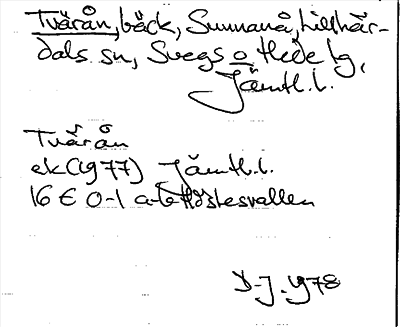 Tvärån, bäck, Sunnanå, Lillhär-
dals sn, Svegs o Hede tg,
Jämtl. l.
Tvärån
ek (1977) Jämtl. l.
16 E 0-1 a-b Höstesvallen
D-J. 1978